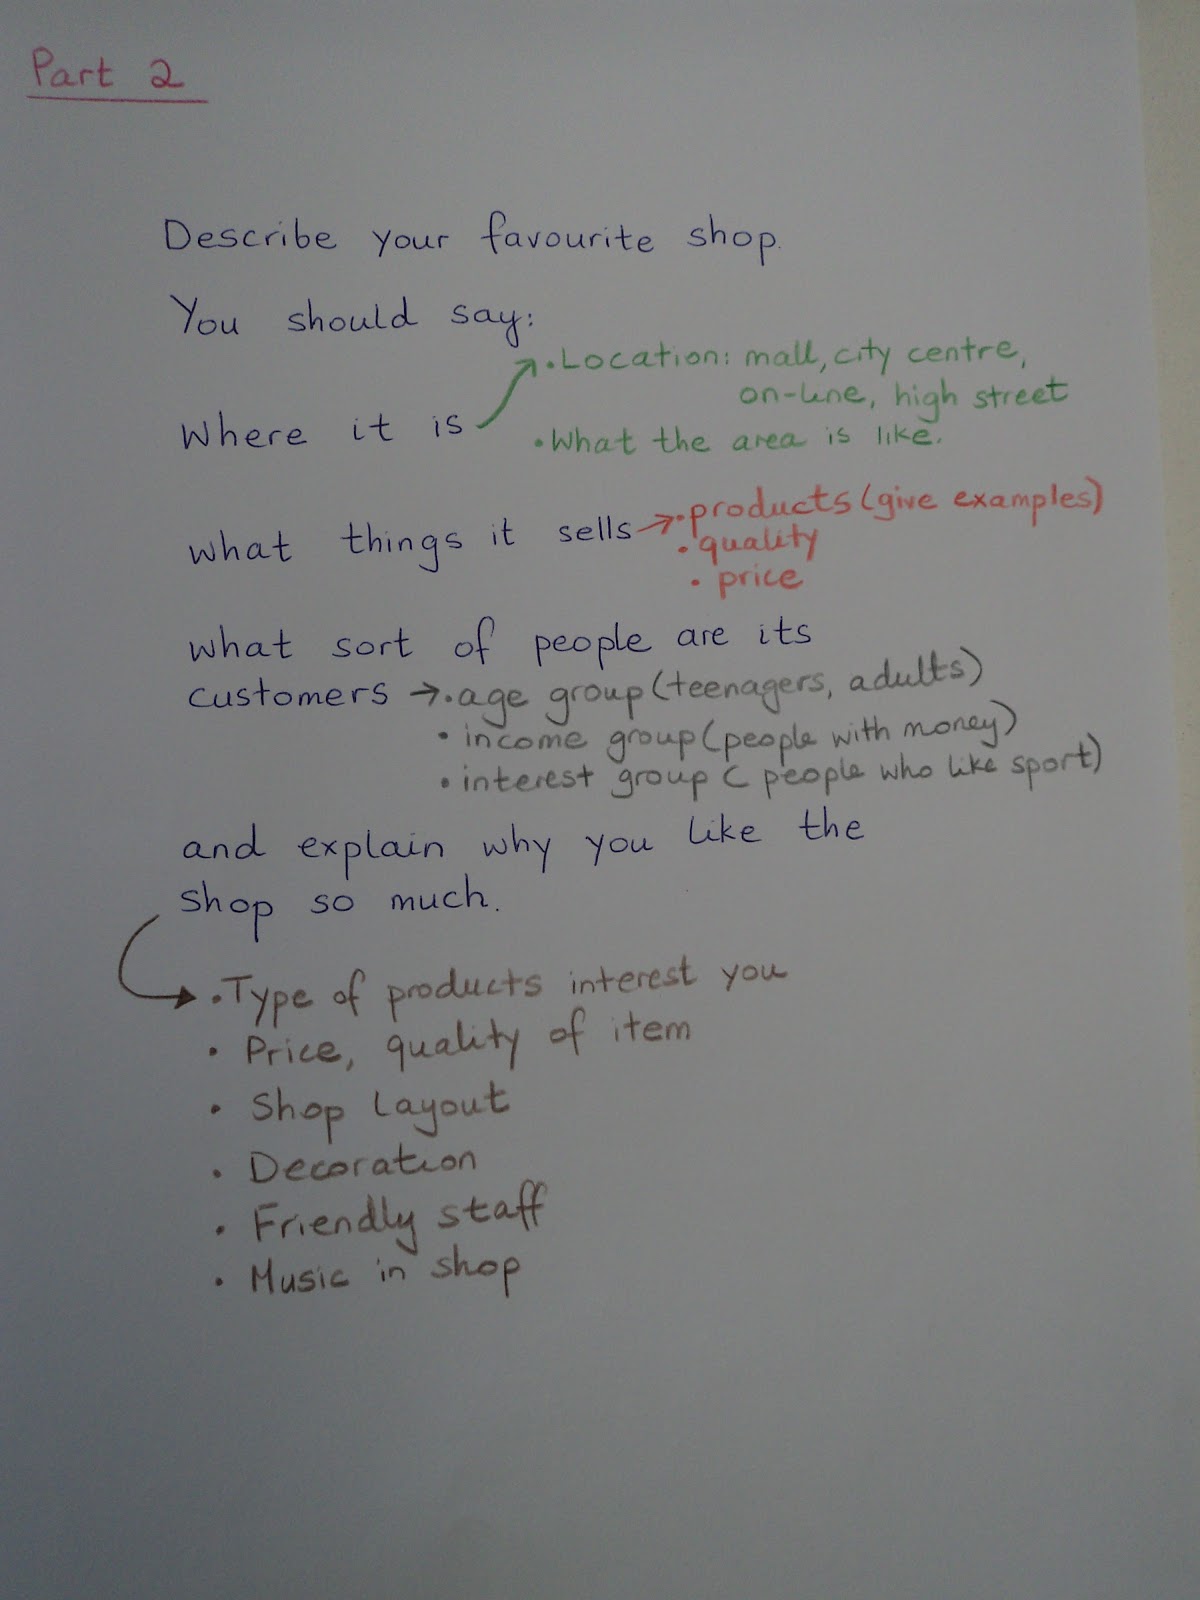 Part 2
Describe your favourite shop.
You should say:
• Location: mall, city centre,
on-line, high street
Where it is
• What the area is like.
what things it sells → • products (give examples)
• quality
• price
what sort of people are its
customers → • age group (teenagers, adults)
• income group (people with money)
• interest group ( people who like sport)
and explain why you like the
shop so much.
• Type of products interest you
• Price, quality of item
• Shop Layout
• Decoration
• Friendly staff
• Music in shop